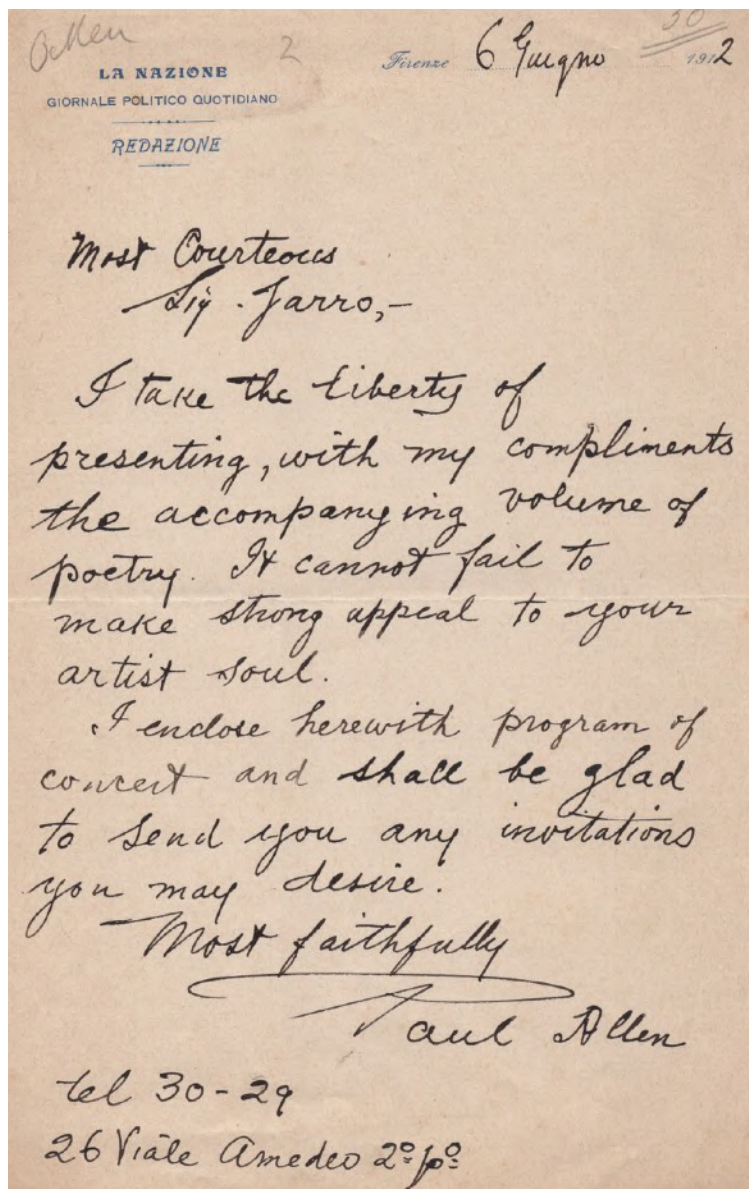 Allen
2
30
LA NAZIONE
GIORNALE POLITICO QUOTIDIANO
REDAZIONE
Firenze 6 Giugno 1912
Most Courteous
Sig. Jarro,-
I take the liberty of
presenting, with my compliments
the accompanying volume of
poetry. It cannot fail to
make strong appeal to your
artist soul.
I enclose herewith program of
concert and shall be glad
to send you any invitations
you may desire.
Most faithfully
Paul Allen
tel 30-29
26 Viale Amedeo 2º pº